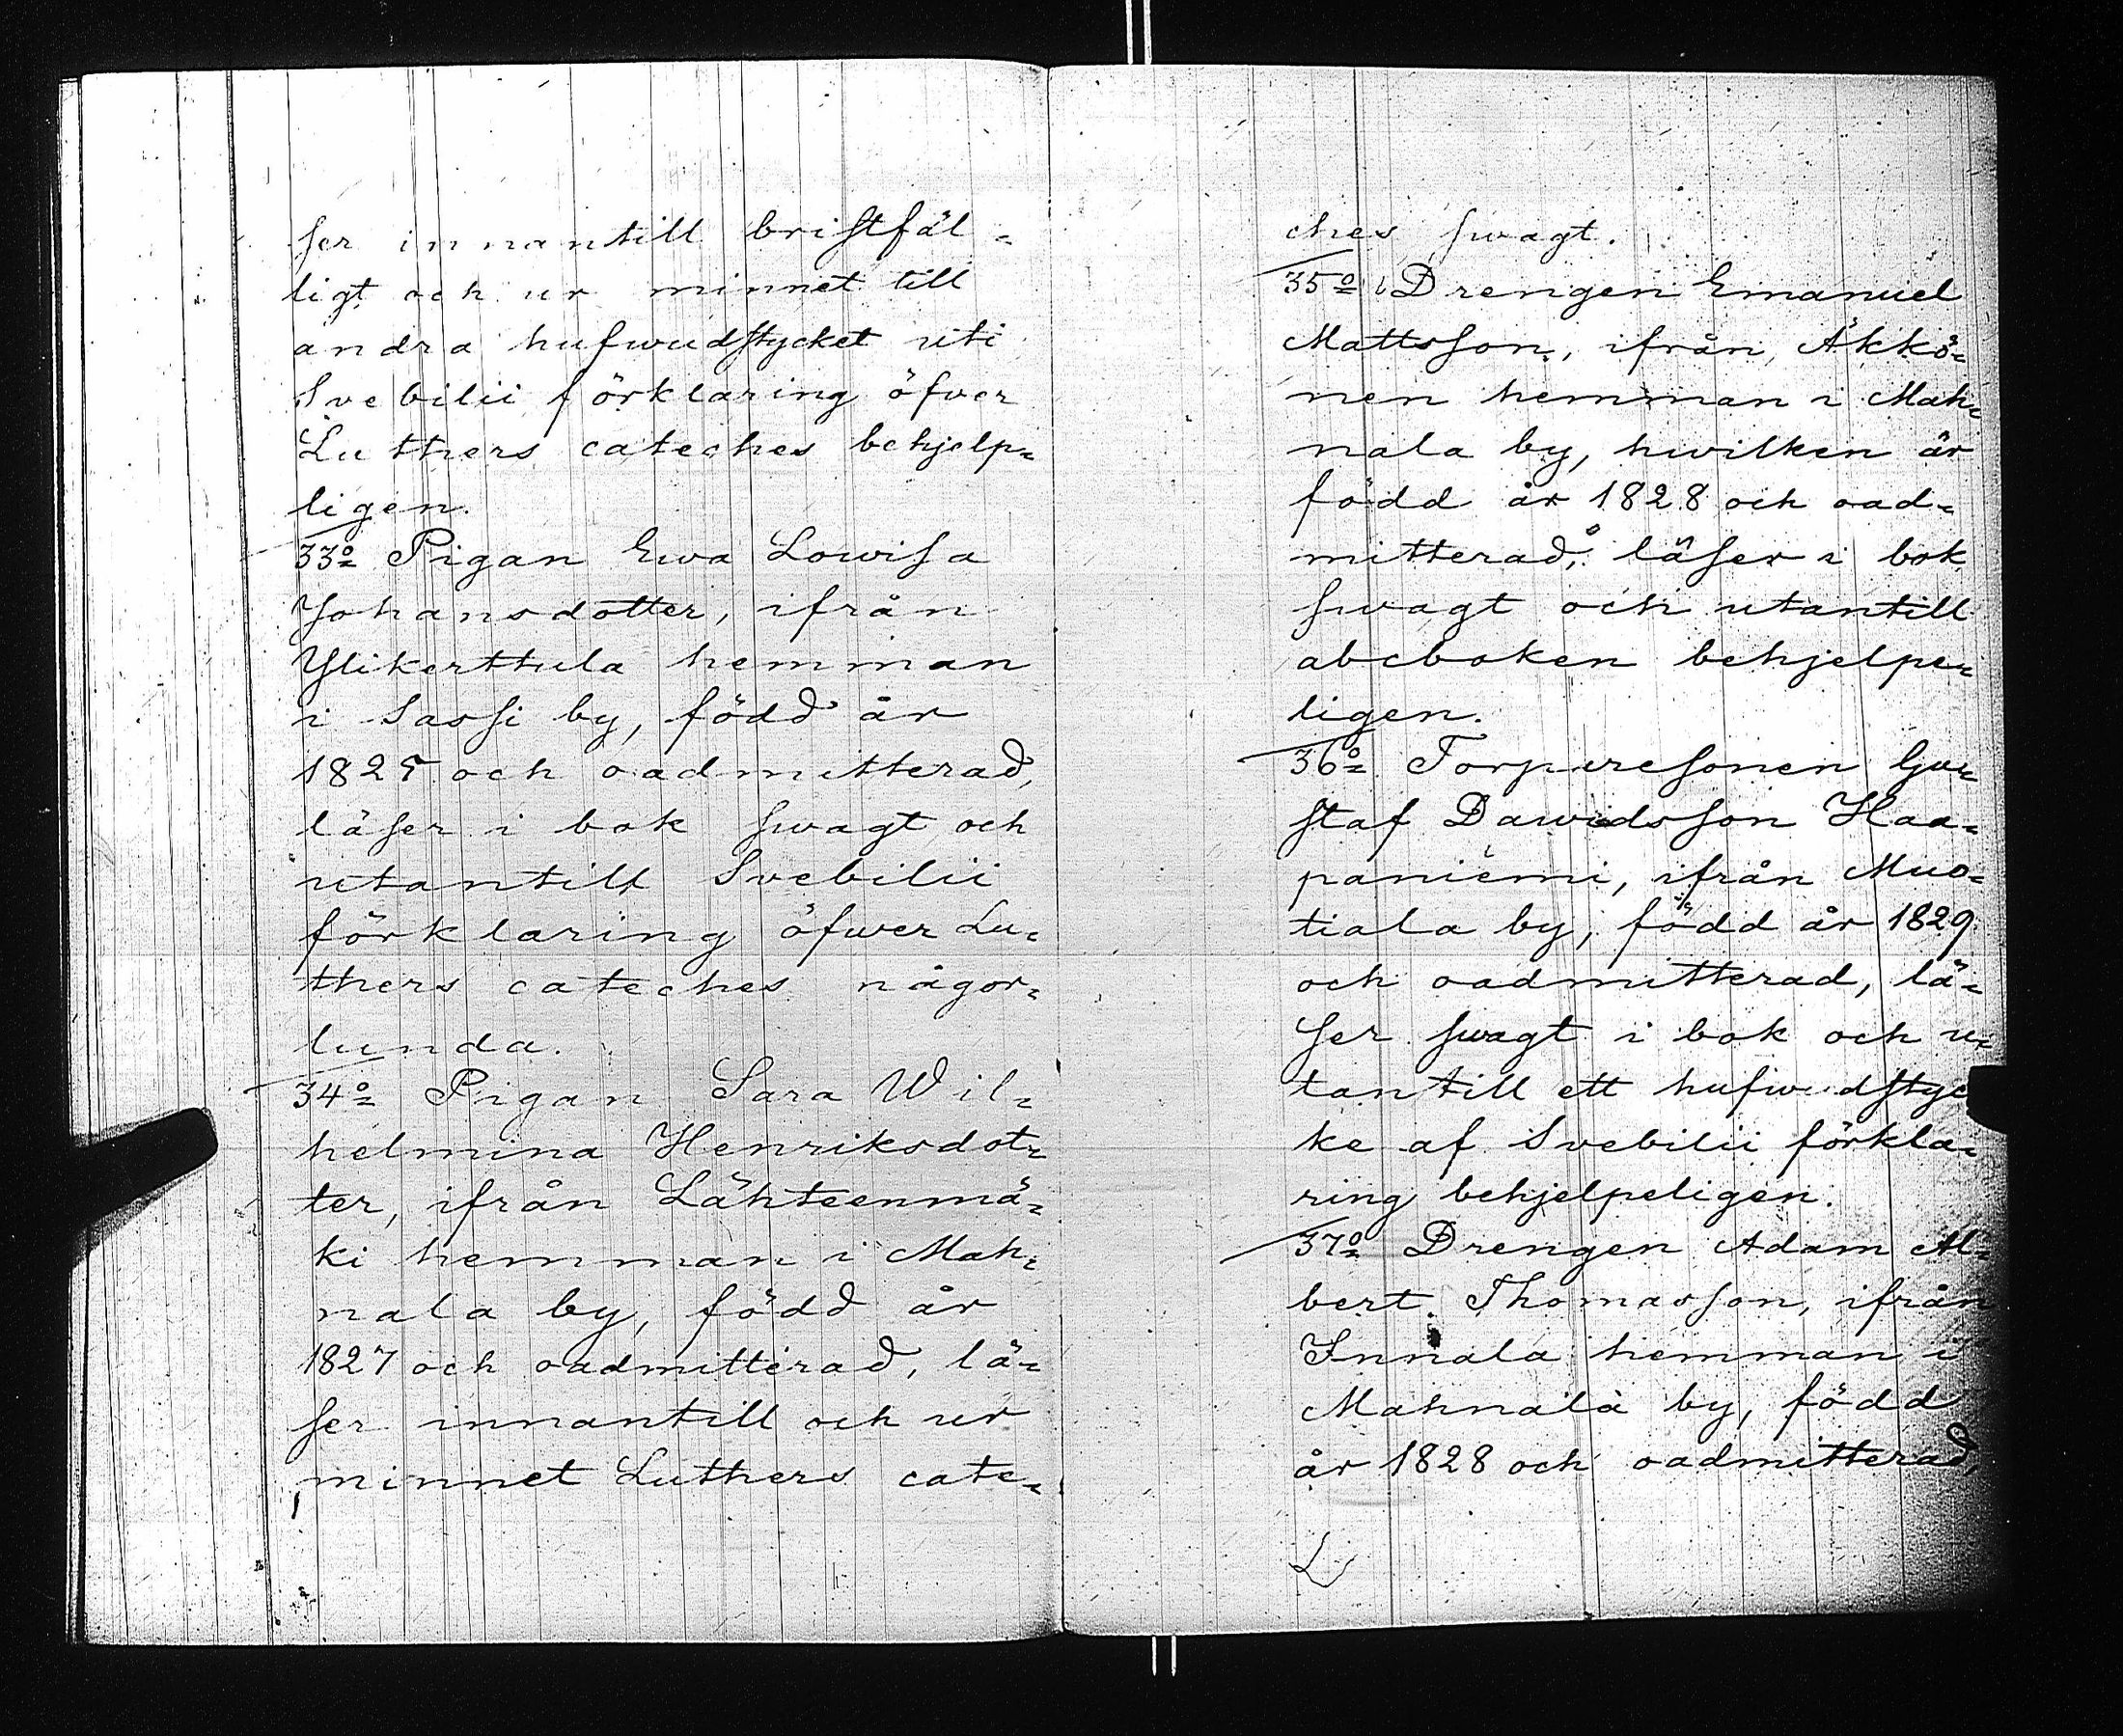 ser innantill bristfäl-
ligt och ur minnet till
andra hufwudstycket uti
Svebilii förklaring öfver
Luthers cateches behjelp-
ligen.
33o Pigan Ewa Lowisa
Johansdotter, ifrån
Ylikerttula hemman
i Sassi by, född år
1825 och oadmitterad,
läser i bok swagt och
utantill Svebilii
förklaring öfwer Lu-
thers cateches någor-
lunda.
34o Pigan Sara Wil-
helmina Henriksdot-
ter, ifrån Lähteenmä-
ki hemman i Mah-
nala by, född år
1827 och oadmitterad, lä-
ser innantill och ur
minnet Luthers cate-
ches swagt.
35o Drengen Emanuel
Mattsson, ifrån Äkkö-
nen hemman i Mah-
nala by, hwilken är
född år 1828 och oad-
mitterad, läser i bok
swagt och utantill
abcboken behjelpe-
ligen.
36o Torparesonen Gu-
staf Dawidsson Haa-
paniemi, ifrån Muo-
tiala by, född år 1829
och oadmitterad, lä-
ser swagt i bok och u-
tantill ett hufwudstyc
ke af Svebilii förkla-
ring behjelpeligen.
37o Drengen Adam Al-
bert Thomasson, ifrån
Innala hemman i
Mahnala by, född
år 1828 och oadmitterad,